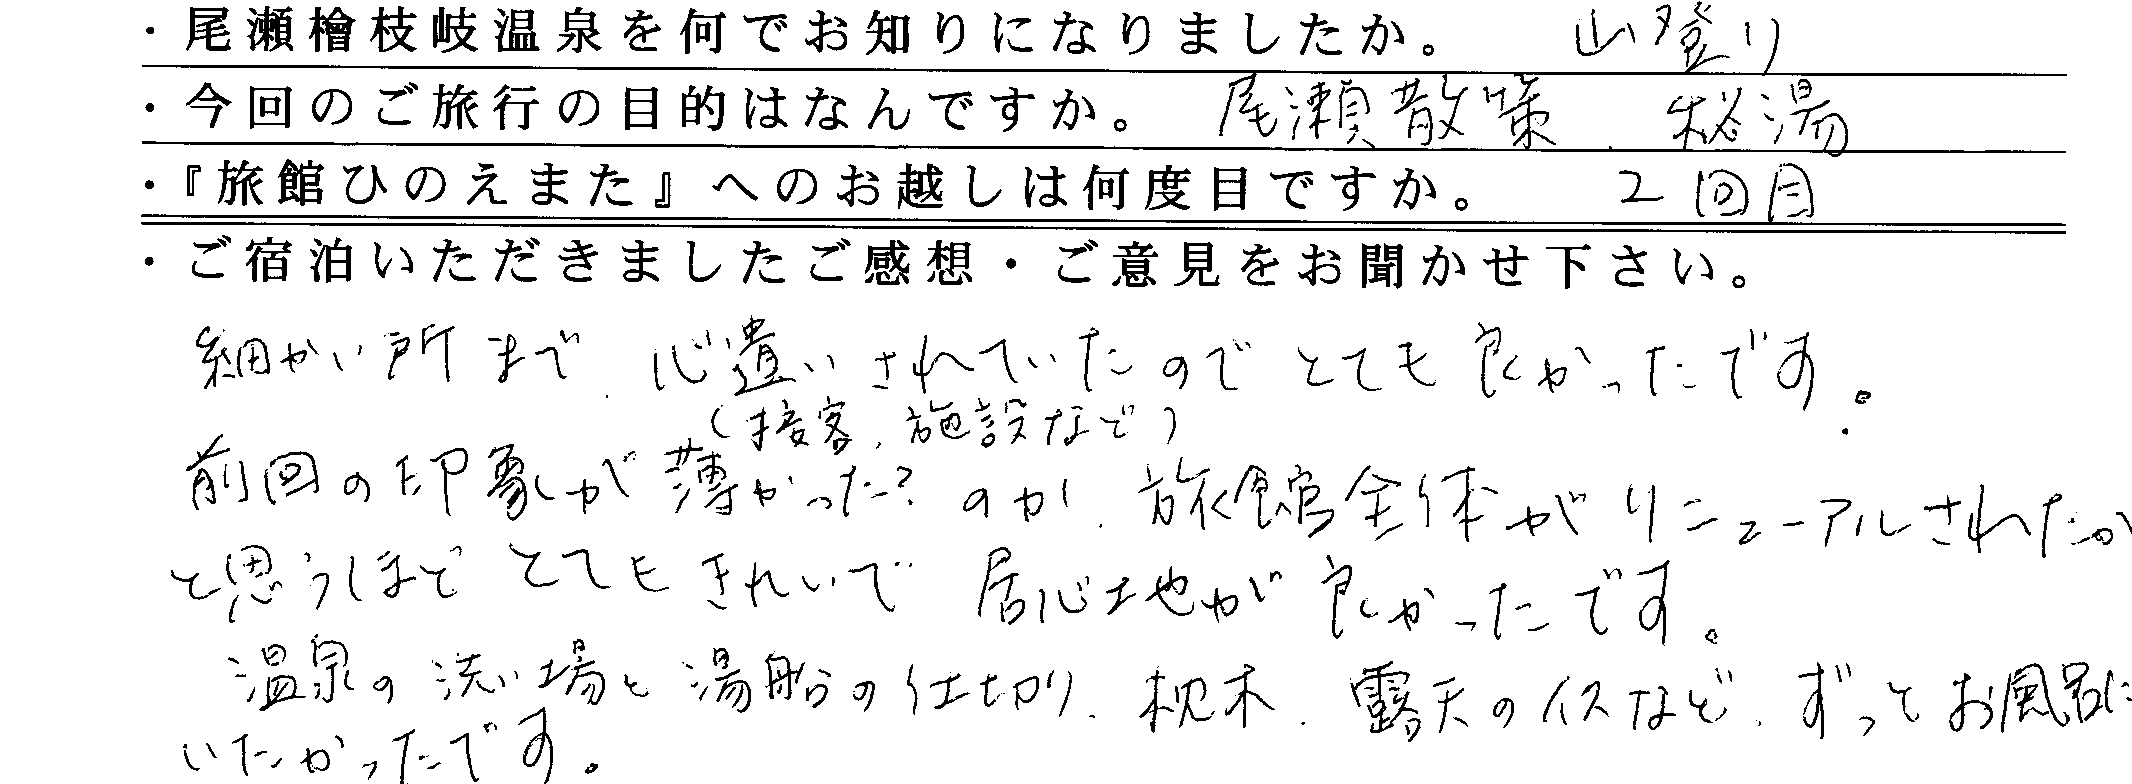 ・尾瀬檜枝岐温泉を何でお知りになりましたか。 山登り
・今回のご旅行の目的はなんですか。 尾瀬散策、秘湯
・『旅館ひのえまた』へのお越しは何度目ですか。 2回目
・ご宿泊いただきましたご感想・ご意見をお聞かせ下さい。
細かい所まで、心遣いされていたのでとても良かったです。
(接客、施設など)
前回の印象が薄かった?のか、旅館全体がリニューアルされたか
と思うほどとてもきれいで居心地が良かったです。
温泉の洗い場と湯船の仕切り、枕木、露天のイスなど、ずっとお風呂に
いたかったです。